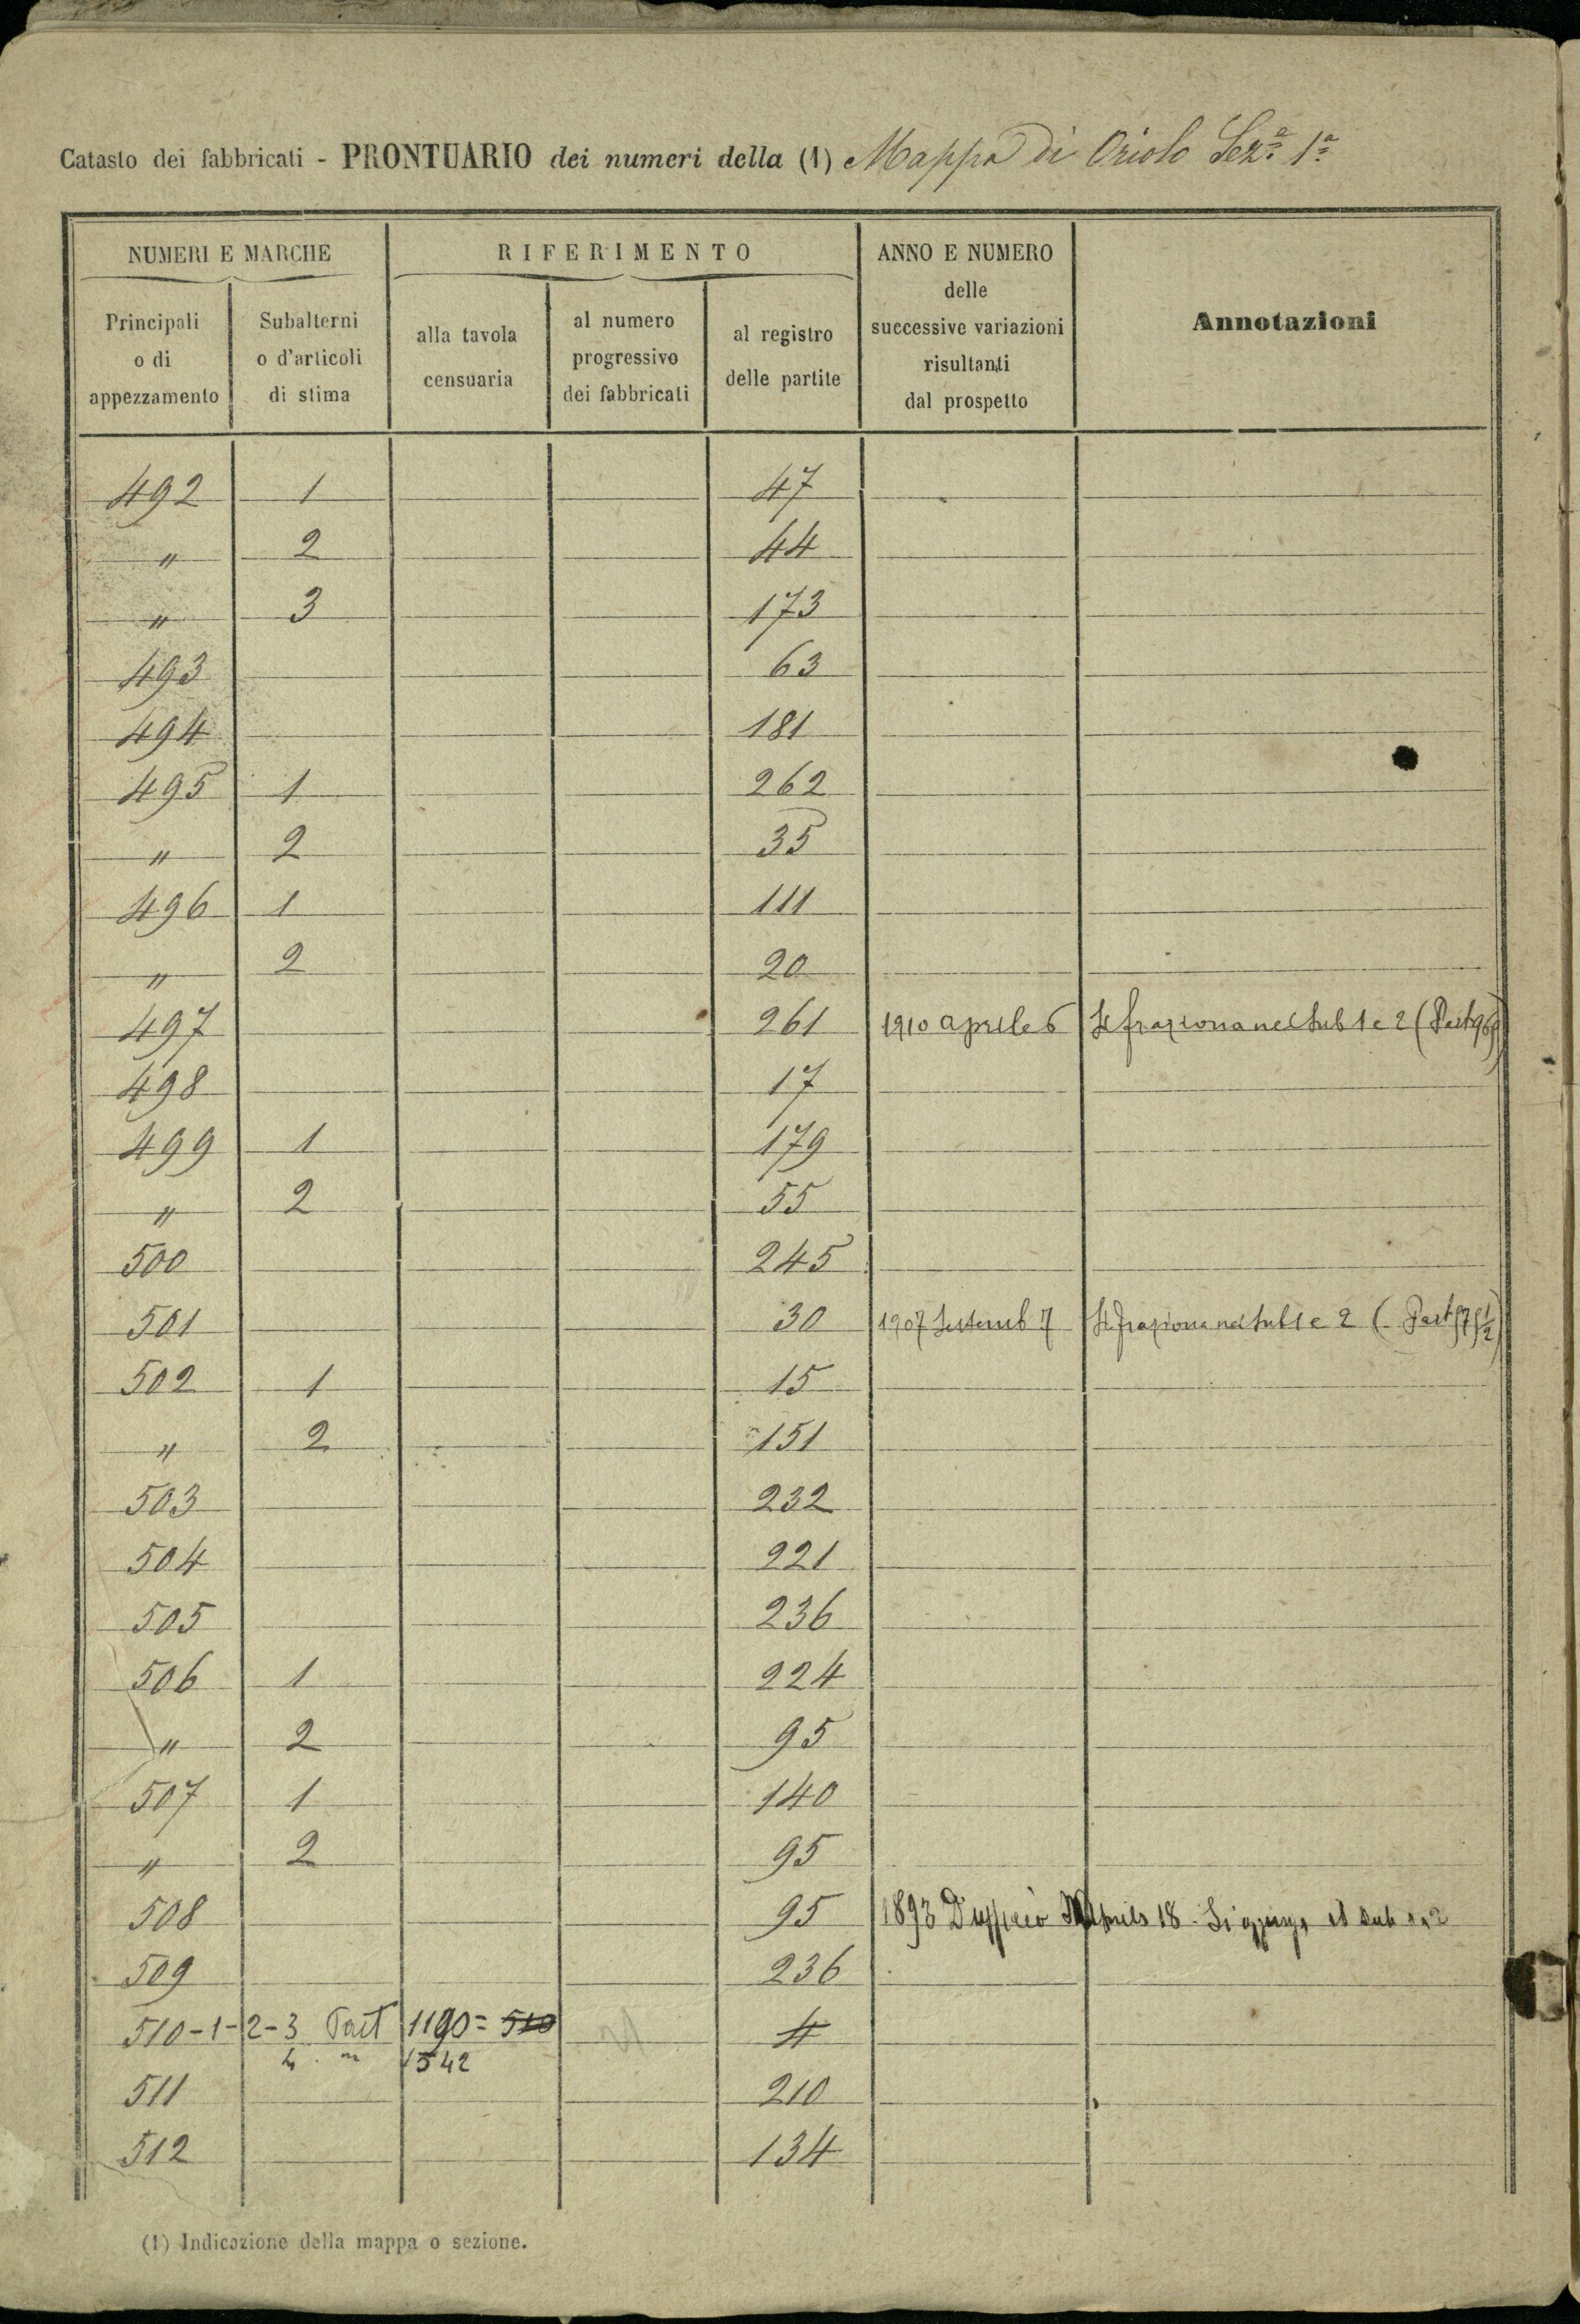 Catasto dei fabbricati - PRONTUARIO dei numeri della (1) Mappa di Oriolo Sez.ª 1ª
NUMERI E MARCHE
Principali o di appezzamento
Subalterni o d'articoli di stima
RIFERIMENTO
alla tavola censuaria
al numero progressivo dei fabbricati
al registro delle partite
ANNO E NUMERO delle successive variazioni risultanti dal prospetto
Annotazioni
492 1 47
" 2 44
" 3 173
493 63
494 181
495 1 262
" 2 35
496 1 111
" 2 20
497 261 1910 aprile 6 Si fraziona nei Sub 1 e 2 (Part
498 17
499 1 179
" 2 55
500 245
501 30 1907 Settemb 7 Si fraziona nei Sub 1 e 2 (Part
502 1 15
" 2 151
503 232
504 221
505 236
506 1 224
" 2 95
507 1 140
" 2 95
508 95 1893 D'ufficio Aprile 18 - Si
509 236
510-1-2-3 Part 1190= 510 4
4 " 1542
511 210
512 134
(1) Indicazione della mappa o sezione.